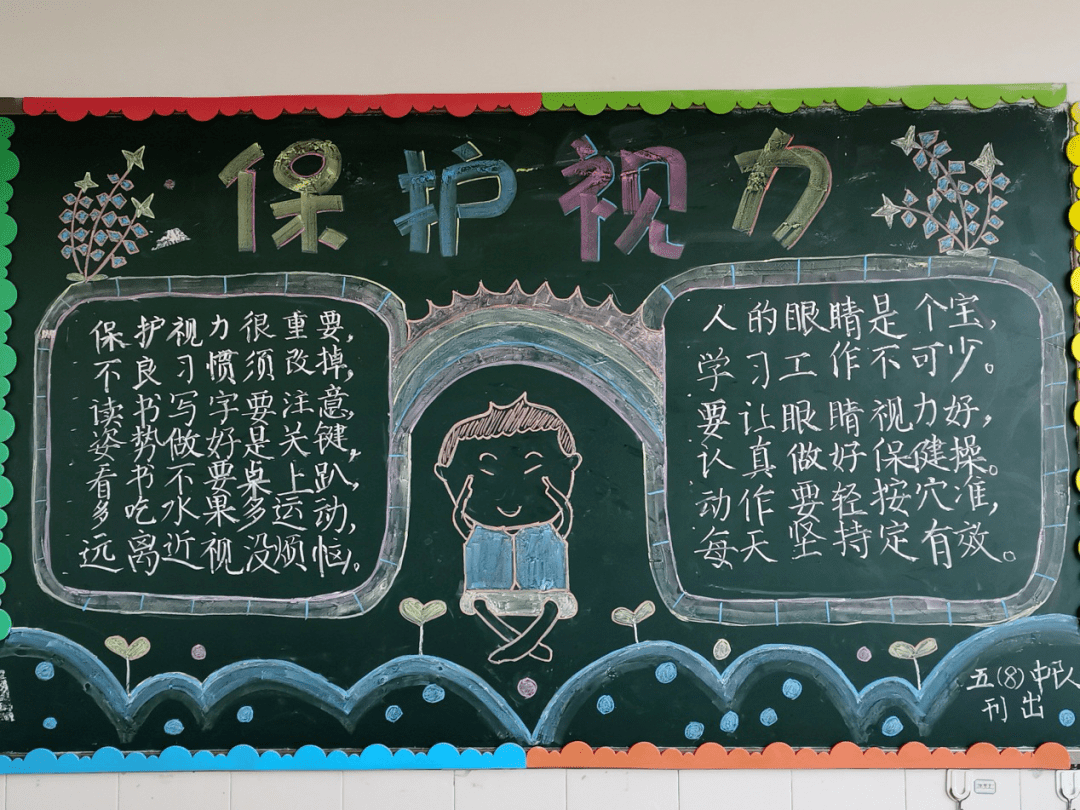 保护视力
保护视力很重要,
不良习惯须改掉,
读书写字要注意,
姿势做好是关键,
看书不要桌上趴,
多吃水果多运动,
远离近视没烦恼。
人的眼睛是个宝,
学习工作不可少。
要让眼睛视力好,
认真做好保健操。
动作要轻按穴准,
每天坚持定有效。
五(8)中队
刊出